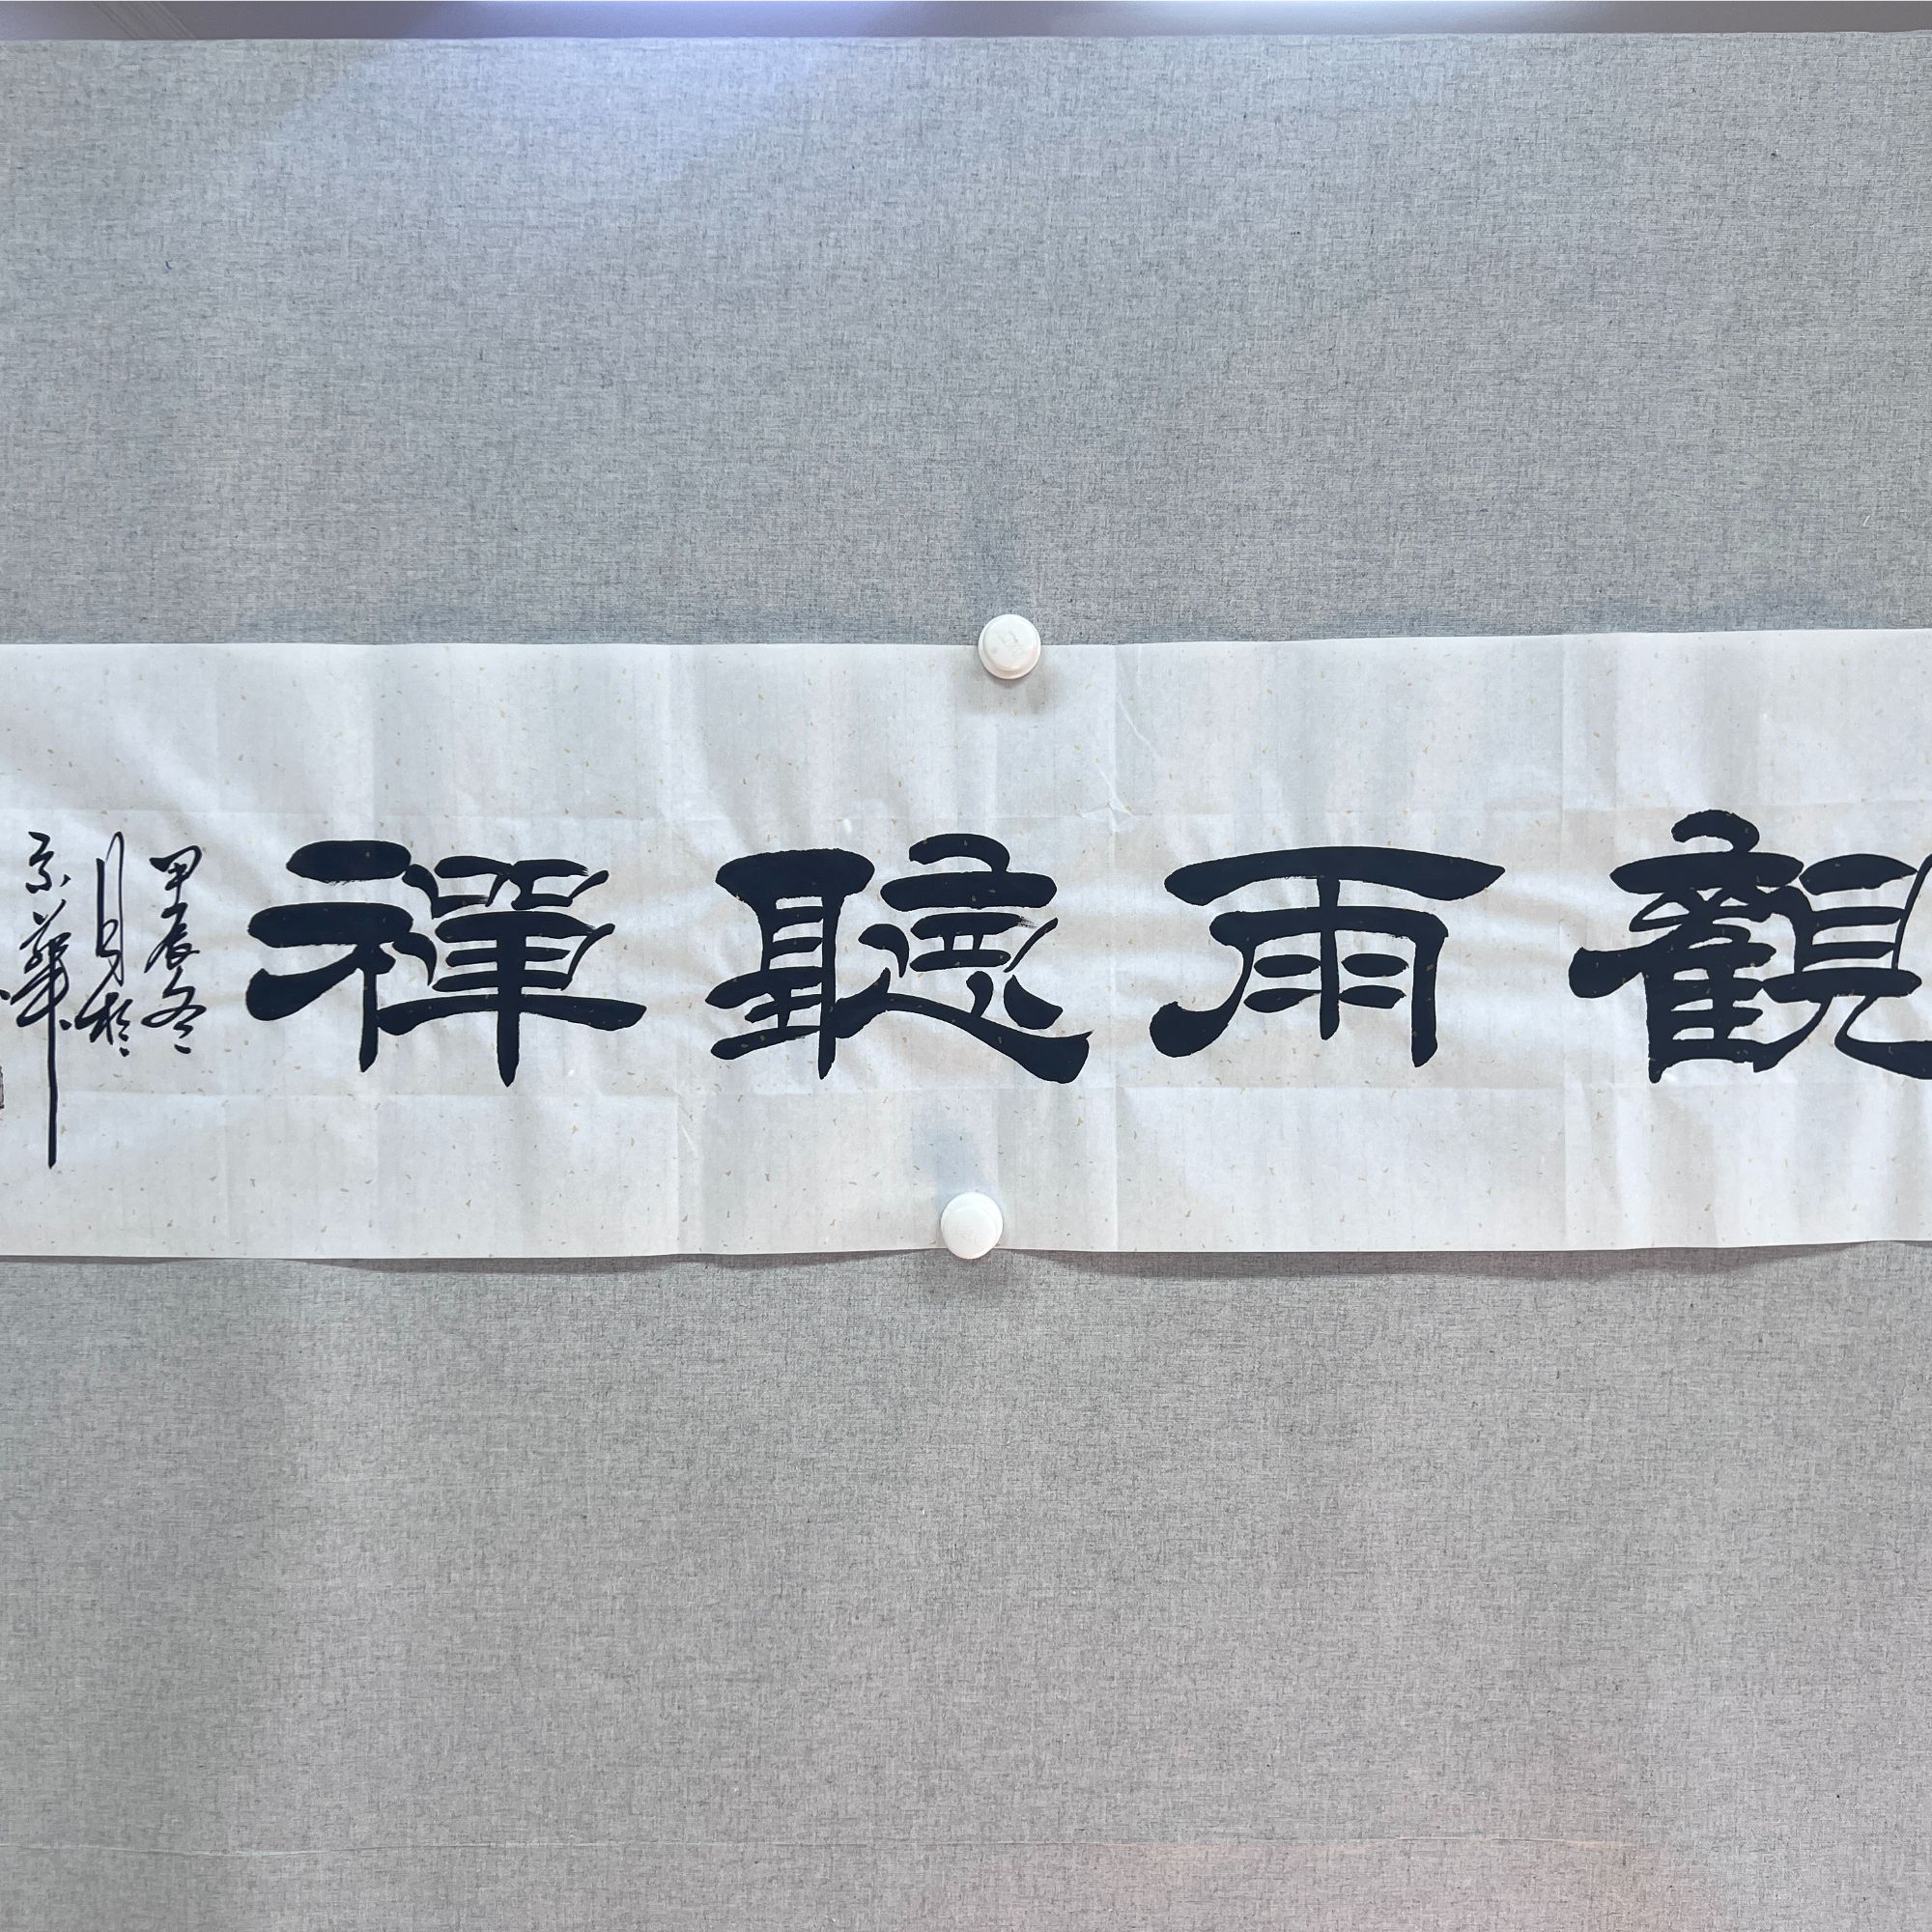 觀雨聽禪
甲辰冬
月於
京華